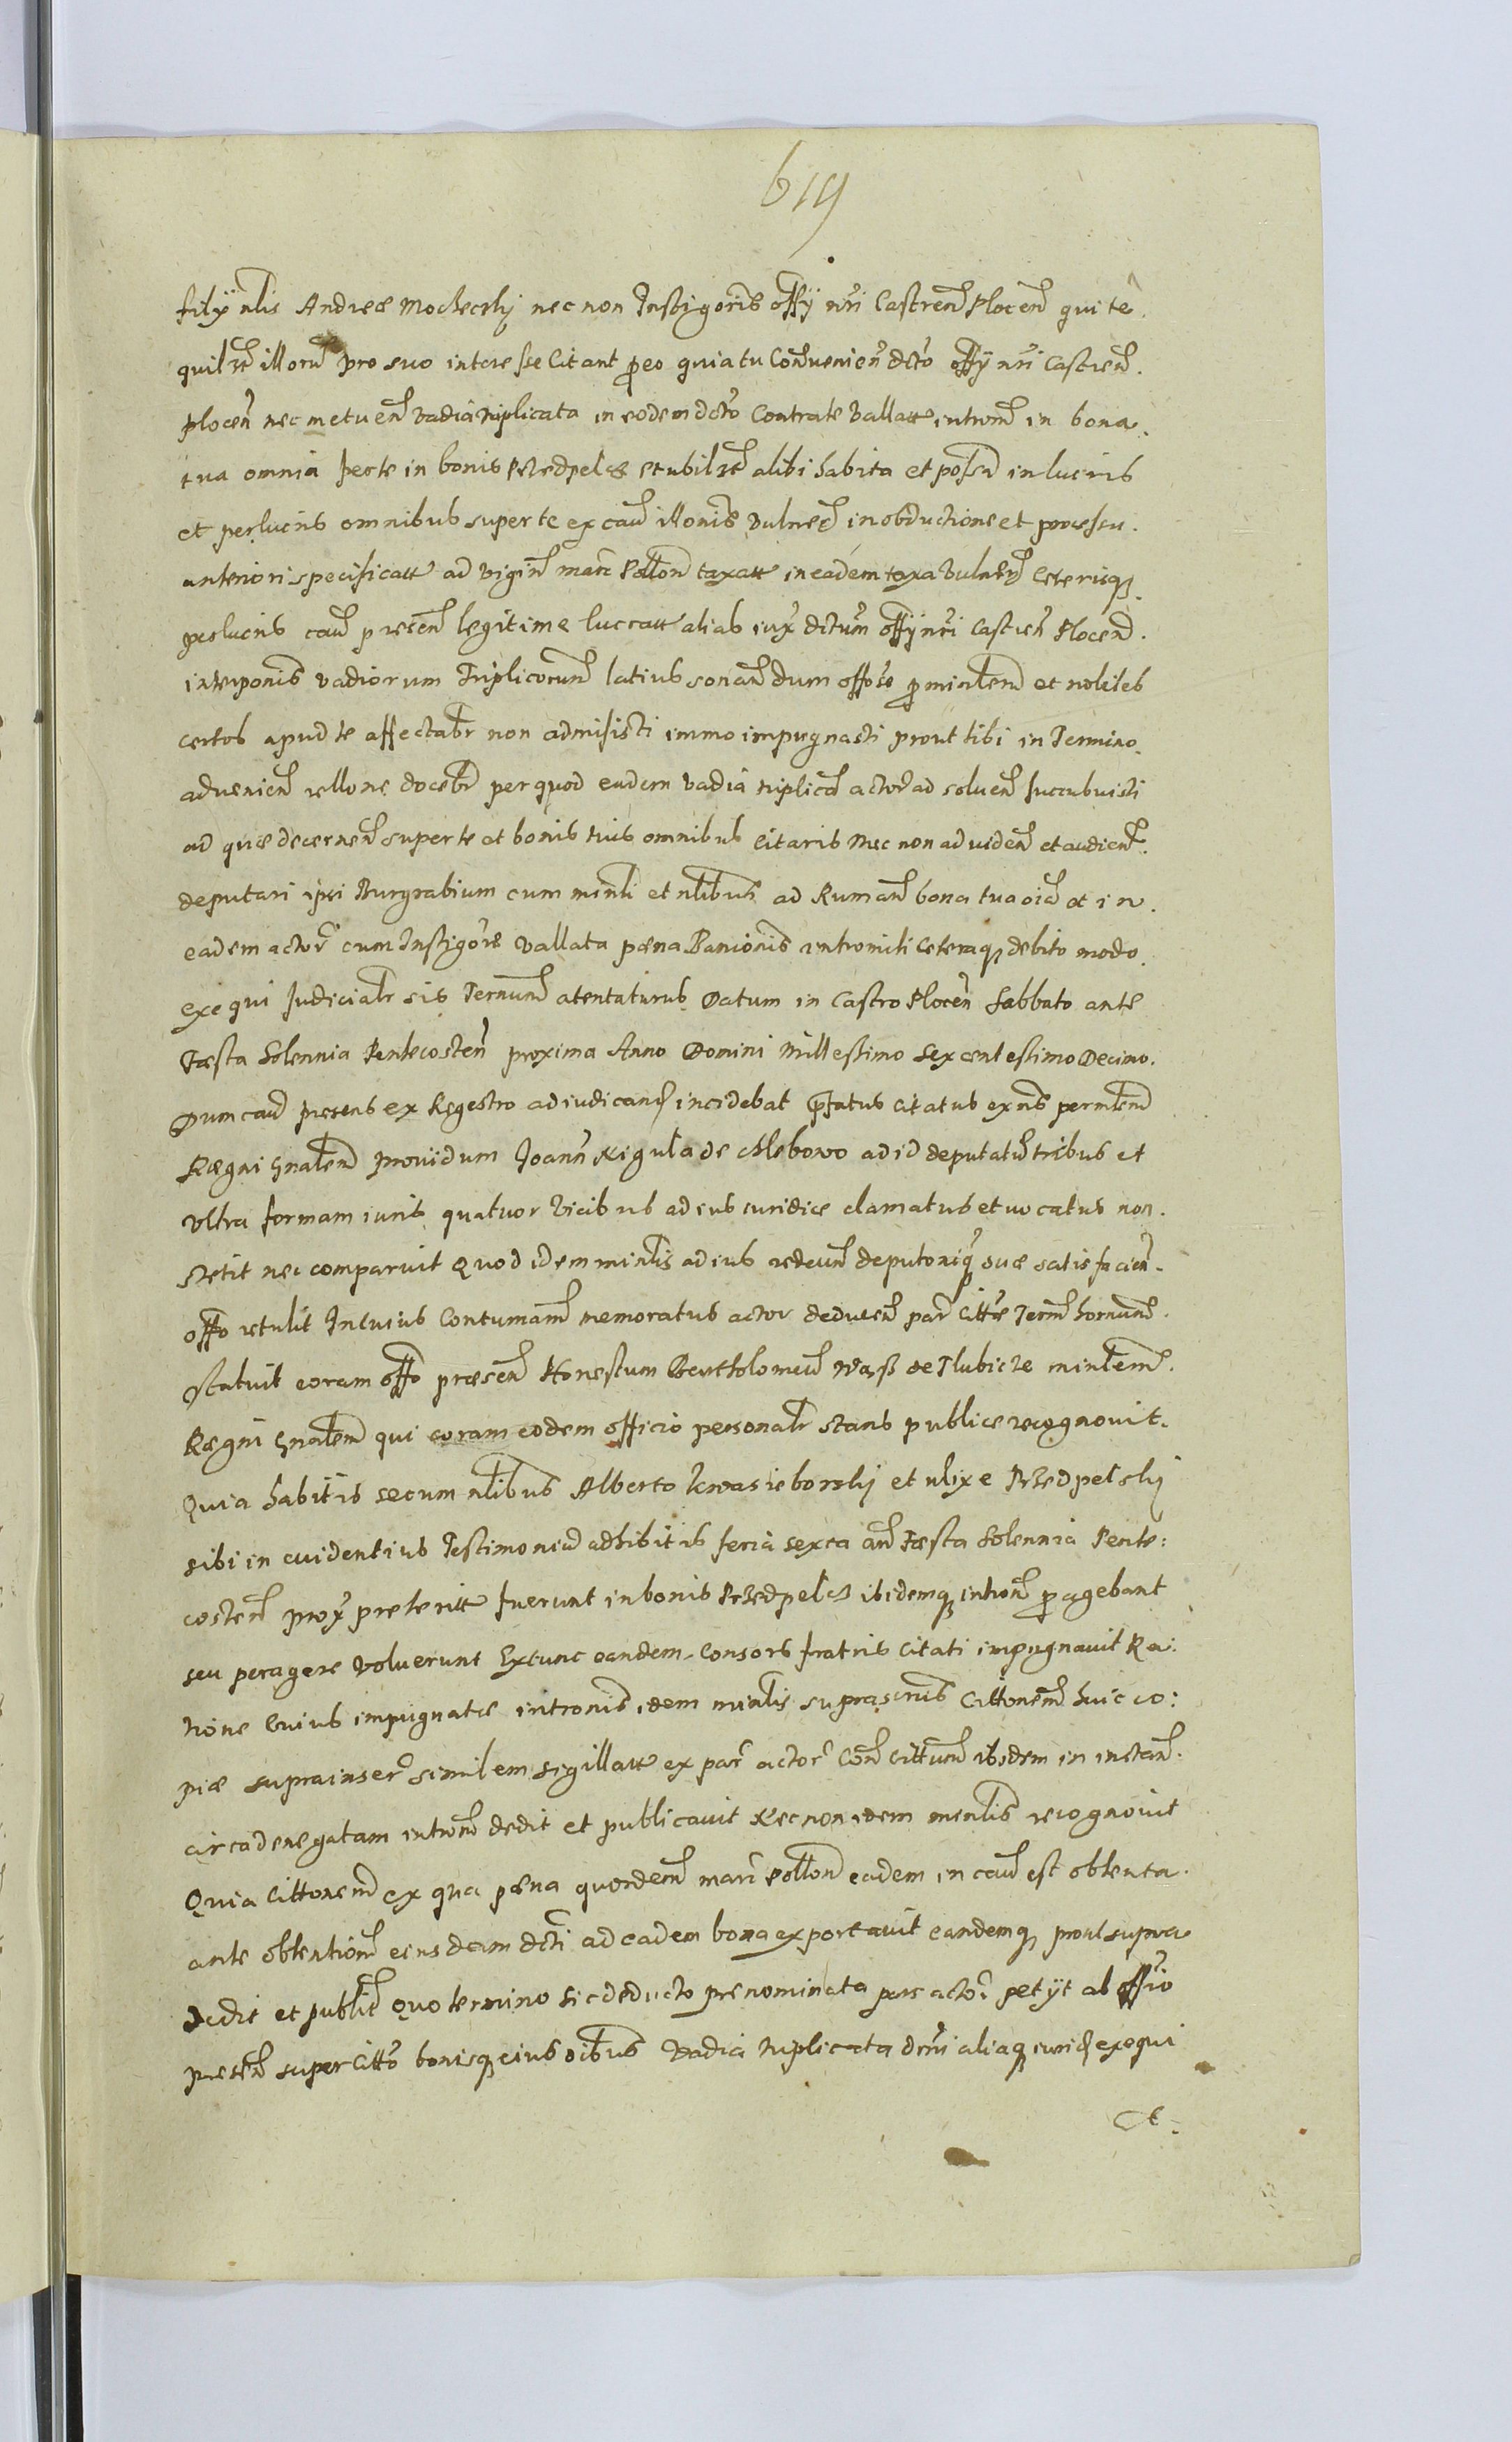 619
filÿ nlis Andreæ Mochecskÿ nec non Instigoris offÿ nri Castren Plocen qui te
quilzt illorũ pro suo interesse Citant p eo quia tu Convenien dcto offÿ nri Castren
plocen nec metuen vadia triplicata in eodem dcto Contra te vallatt introm in bona
tua omnia per te in bonis Przedpelcz et ubilzt alibi habita et possa in lucris
et perlucris omnibus super te ex cau illonis vulner in obductione et processu
anteriori specificatt ad vigin marc Pollon taxatt in eadem taxa vulner Ceterisq
perlucris cau presen legitime lucratt alias iux dctum offÿ nri Castren Plocen
interponis vadiorum Triplicorum latius sonan dum offose p minlem et nobiles
certos apud te affectabr non admisisti immo impugnasti prout tibi in Termino
advenien rellone docebr per quod eadem vadia triplica actori ad solven succubuisti
ad quæ decernen super te et bonis tuis omnibus Citaris Nec non ad viden et audien
deputari ipsi Burgrabium cum minli et nlibus ad Ruman bona tua oia et in
eadem actor cum Instigore vallata pæna Banionis intromitti Ceteraq debito modo
exequi Judicialr sis Terminum atentaturus Datum in Castro Plocen Sabbato ante
Fæsta Solennia Pentecosten proxima Anno Domini Millesimo Sexcentesimo Decimo
Dum cau presens ex Regestro ad iudican incidebat Pfatus Citatus ex nō per minlem
Rægni Gnalem Providum Joann Nigula de Chlebowo ad id deputatũ tribus et
ultra formam iuris quatuor vicibus ad ius iuridice clamatus et vocatus non
stetit nec comparuit Quod idem minlis ad ius redeun deputoniq suæ satisfacien
offo retulit In cuius Contumam memoratus actor deducen par Cittæ Term hornum
Statuit coram offo præsen Honestum Bartholomeũ Wasz de Tlubicze minlem
Rægni Gnalem qui coram eodem officio personalr stans publice recognovit
Quia habitis secum nlibus Alberto Kwasieborskÿ et ulixe Przedpelskÿ
sibi in evidentius Testimoniũ adhibitis feria sexta an Fæsta Solennia Pente:
costen prox preteritt fuerunt in bonis Przedpelcz ibidemq introm pagebant
seu peragere voluerunt Extunc eandem Consors fratris Citati impugnavit Ra:
tione Cuius impugnatæ intronis idem minlis suprascrus Cittonem huic co:
piæ suprainser similem sigillatt ex par actor Con Cittum ibidem in instan
circa denegatam introm dedit et publicavit Nec non idem menlis recognovit
Quia Cittonem ex qua pæna quordem marc Pollon eadem in cau est obtenta
ante obtentionem eiusdem dcti ad eadem bona exportavit eandemq prout supra
dedit et publit Quo termino sic deducto prenominata pars actor petÿt ab offio
presen super Citto bonisq eius oibus vadia triplicata dcrni aliaq iurid exequi
et